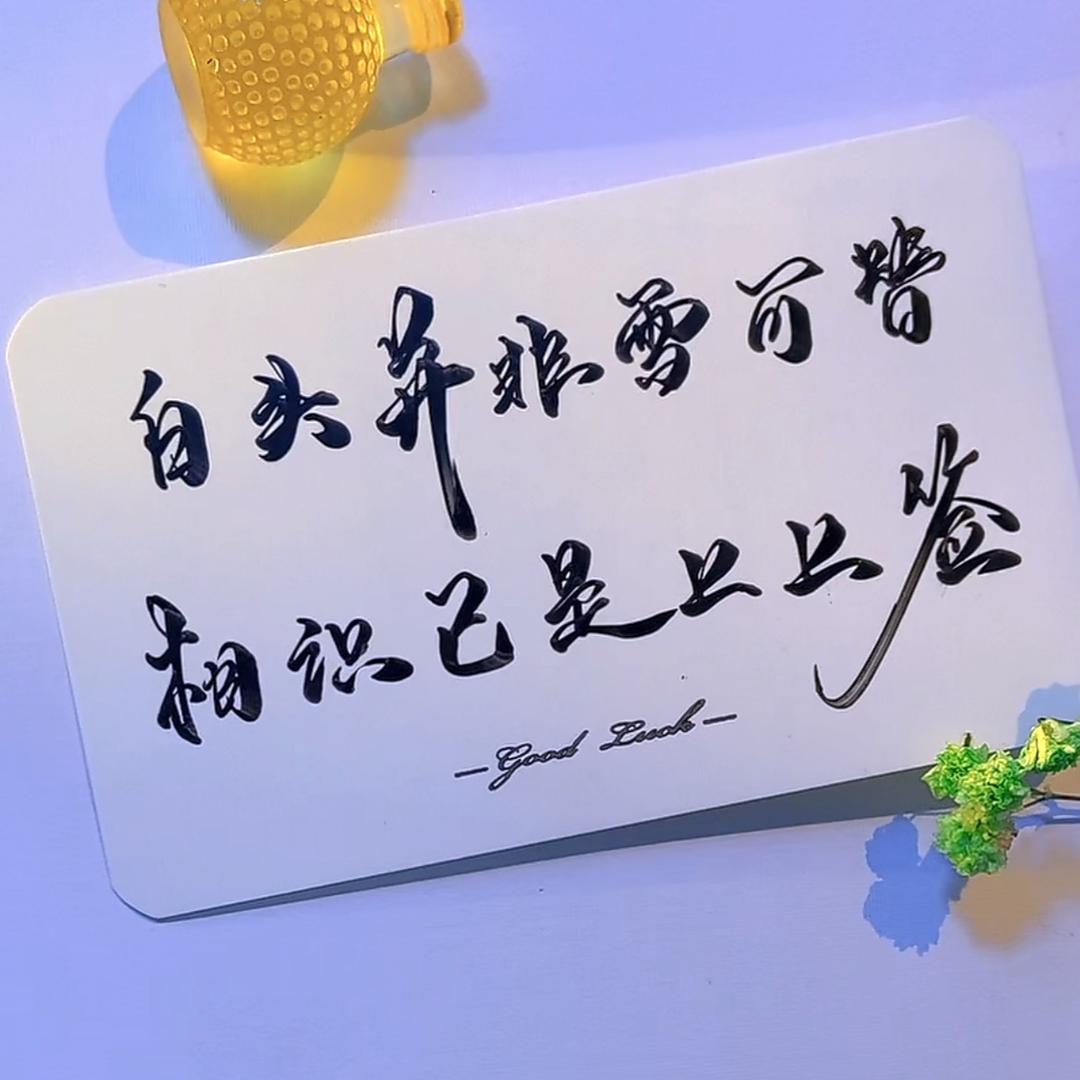 白头并非雪可皆
相识已是上上签
—Good Luck—